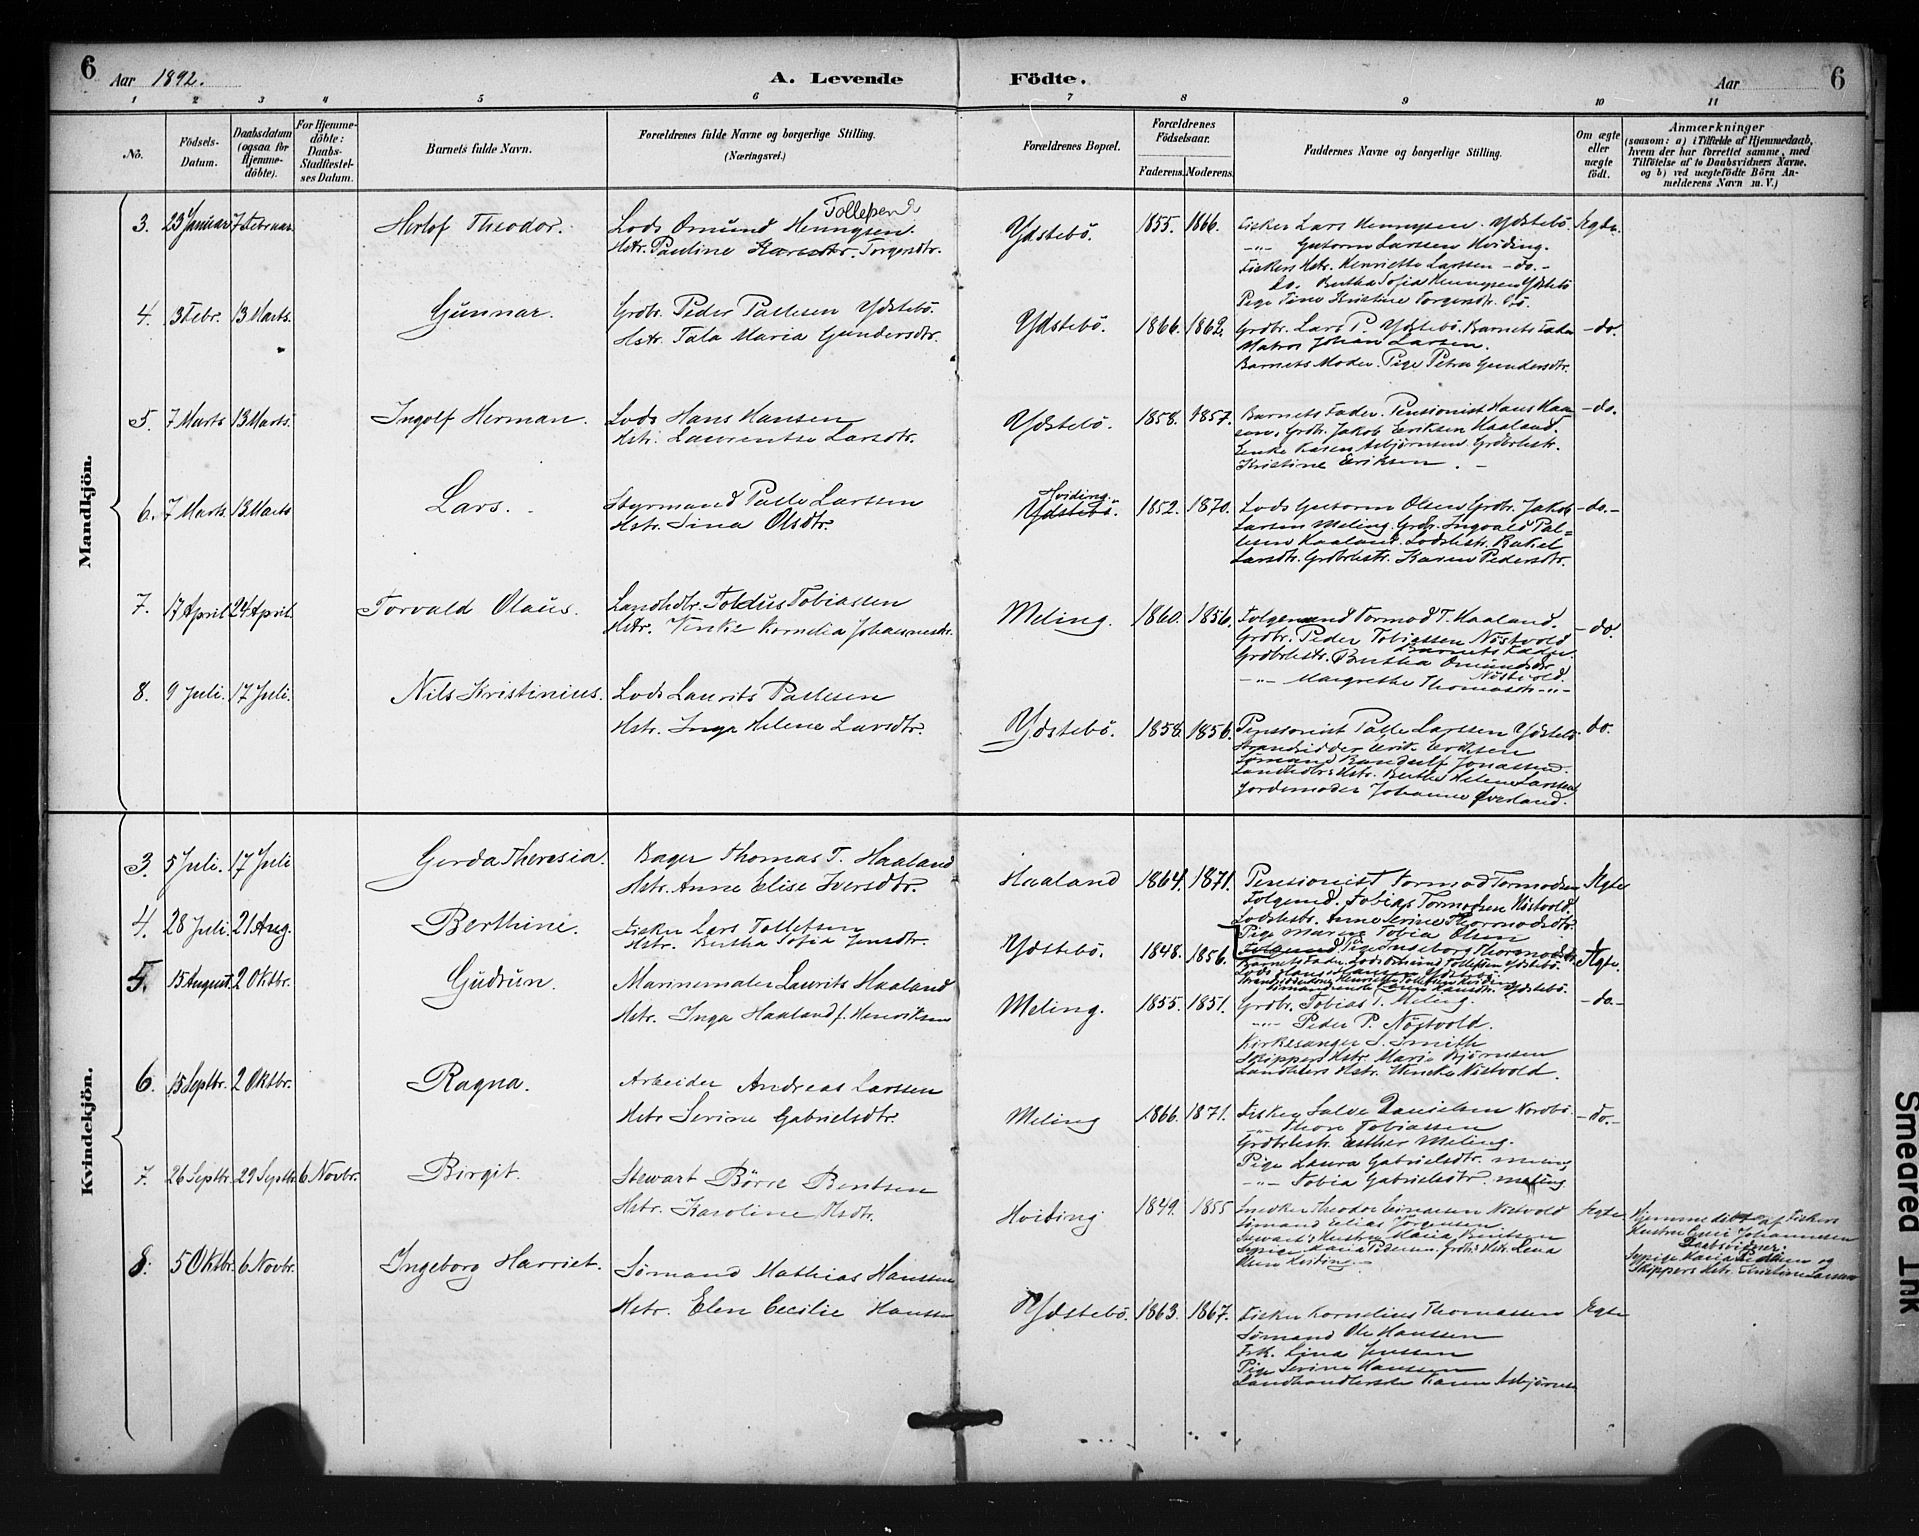 6 Aar 1892. A. Levende Födte. Aar 6
1 2 3 4 5 6 7 8 9 10 11
No.
Födsels-
Datum.
Daabsdatum
(ogsaa for
Hjemme-
döbte).
For Hjemme-
döbte:
Daabs-
Stadfæstel-
ses Datum.
Barnets fulde Navn.
Forældrenes fulde Navne og borgerlige Stilling.
(Næringsvei.)
Forældrenes Bopæl.
Forældrenes
Födselsaar.
Faderens. Moderens.
Faddernes Navne og borgerlige Stilling.
Om ægte
eller
uægte
födt.
Anmærkninger
(saasom: a) i Tilfælde af Hjemmedaab,
hvem der har forrettet samme, med
Tilföielse af to Daabsvidners Navne.
og b) ved uægtefödte Börn An-
melderens Navn m. V.)
Mandkjön.
3. 23 Januar 7 Februar. Herlof Theodor. Ydstebö. 1855. 1866. Ægte.
Lods Omund Henngsen.
Hstr. Pauline Torgersdtr.
Fisker Lars Henngsen Ydstebö
-"- Gutorm Larssen Hviding.
Fiskers Hstr. Henriette Larssen -do.-
do. Bertha Sofia Henngsen Ydstebö
4. 3 Febr. 13 Marts. Gunnar. Ydstebö. 1866. 1862. -do.
Grdbr. Peder Pallesen Ydstebö
Hstr. Tala Maria Gundersdtr.
Grdbr. Lars P. Ydstebö. Barnets Fader
Matros Johan Larsen.
Barnets Moder. Pige Petra Gundersdtr.
5. 7 Marts 13 Marts. Ingolf Herman. Ydstebö. 1858. 1857. -do.
Lods Hans Hansen
Hstr. Laurentse Larsdtr.
Barnets Fader. Pensionist Hans Han-
sen, Grdbr. Jakob Eriksen Haaland.
Enke Karen Asbjørnsen. Grdbrhstr.
Kristine Eriksen. -
6. 7 Marts. 13 Marts Lars. Hviding. Ydstebö. 1852. 1870. -do.-
Styrmand Palle Larssen
Hstr. Sina Olsdtr.
Lods Gutorm Olsen Grdbr. Jakob
Larsen Meling. Grdbr. Ingvald Pal=
lesen Haaland. Lodshstr. Rakel
Larsdtr. Grdbrhstr. Karen Pedersdtr.
7. 17 April 24 April. Torvald Olaus. Meling. 1860. 1856. -do.
Landhdlr. Toldus Tobiassen
Hstr. Venke Kornelia Johannesdtr.
Folgemand Tormod T. Haaland.
Grdbr. Peder Tobiassen Nöstvold
Barnets Fader.
Grdbrhstr. Bertha Omundsdtr.
Nöstvold.
-"- Margrethe Thomasdtr. -"-
8. 9 Juli. 17 Juli. Nils Kristinius. Ydstebö. 1858. 1856. do.
Lods Laurits Pallesen
Hstr. Inga Helene Larsdtr.
Pensionist Palle Larssen Ydstebö
Strandsidder Erik Eriksen
Sømand Randulf Jonassen.
Landhdlrs Hstr. Berthe Helene Larssen
Jordemoder Johanne Øverland.
Kvindekjön.
3. 5 Juli. 17 Juli Gerda Theresia. Haaland 1864. 1871. Ægte
Bager Thomas T. Haaland
Hstr. Anne Elise Iversdtr.
Pensionist Tormod Tormodsen
Folgemd. Tobias Tormodsen Nöstvold.
Lodshstr. Anne Serine Thormodsdtr.
Pige Marne Tobia Olsen
Pige Ingeborg Thormodsdtr.
4. 28 Juli. 21 Aug. Berthine. Ydstebö. 1848. 1856. Ægte.
Fisker Lars Tollefsen
Hstr. Bertha Sofia Jensdtr.
Barnets Fader. Lods Omund Tollefsen Ydstebö.
Lods Hans Hansen Ydstebö
5. 15 August. 2 Oktbr. Gudrun. Meling. 1855. 1851. -do.-
Marinemaler Laurits Haaland
Hstr. Inga Haaland f. Henriksen
Grdbr. Tobias T. Meling.
-"- Peder P. Nöstvold.
Kirkesanger S. Smith
Skippers Hstr. Marie Bjørnsen
Landhlers Hstr. Wenche Nöstvold.
6. 15 Septbr. 2 Oktbr. Ragna. Meling 1866. 1871. -do.-
Arbeider Andreas Larssen
Hstr. Serine Gabrielsdtr.
Fisker Salve Danielsen Nordbö.
-"- Thore Tobiassen
Grdbrhstr. Esther Meling.
Pige Laura Gabrielsdtr. Meling
-"- Tobia Gabrielsdtr. Meling.
7. 26 Septbr. 29 Septbr. 6 Novbr. Birgit. Hviding 1849. 1855 Ægte
Stewart Börre Bentsen
Hstr. Karoline
Snedker Theodor Einarsen Nöstvold
Sömand Elias Jörgensen.
Stewart's Hustru Maria Bentsen
Sypige Maria Pedersen. Grdbrs Hstr. Lena
Olsen
Hjemmedöbt af Fiskers
Hustru Johannesen
Daabsvidner:
Sypige Maria Pedersen og
Skippers Hstr. Kristine Larsen
8. 5 Oktbr. 6 Novbr. Ingeborg Harriet. Ydstebö. 1863. 1867. Ægte
Sømand Mathias Hanssen
Hstr. Elen Cecilie Hanssen
Fisker Kornelius Thomassen
Sømand Ole Hanssen
Frk. Lina Jenssen
Pige Serine Hansen
Landhandlerske Karen Asbjørnsen
Smeared Ink